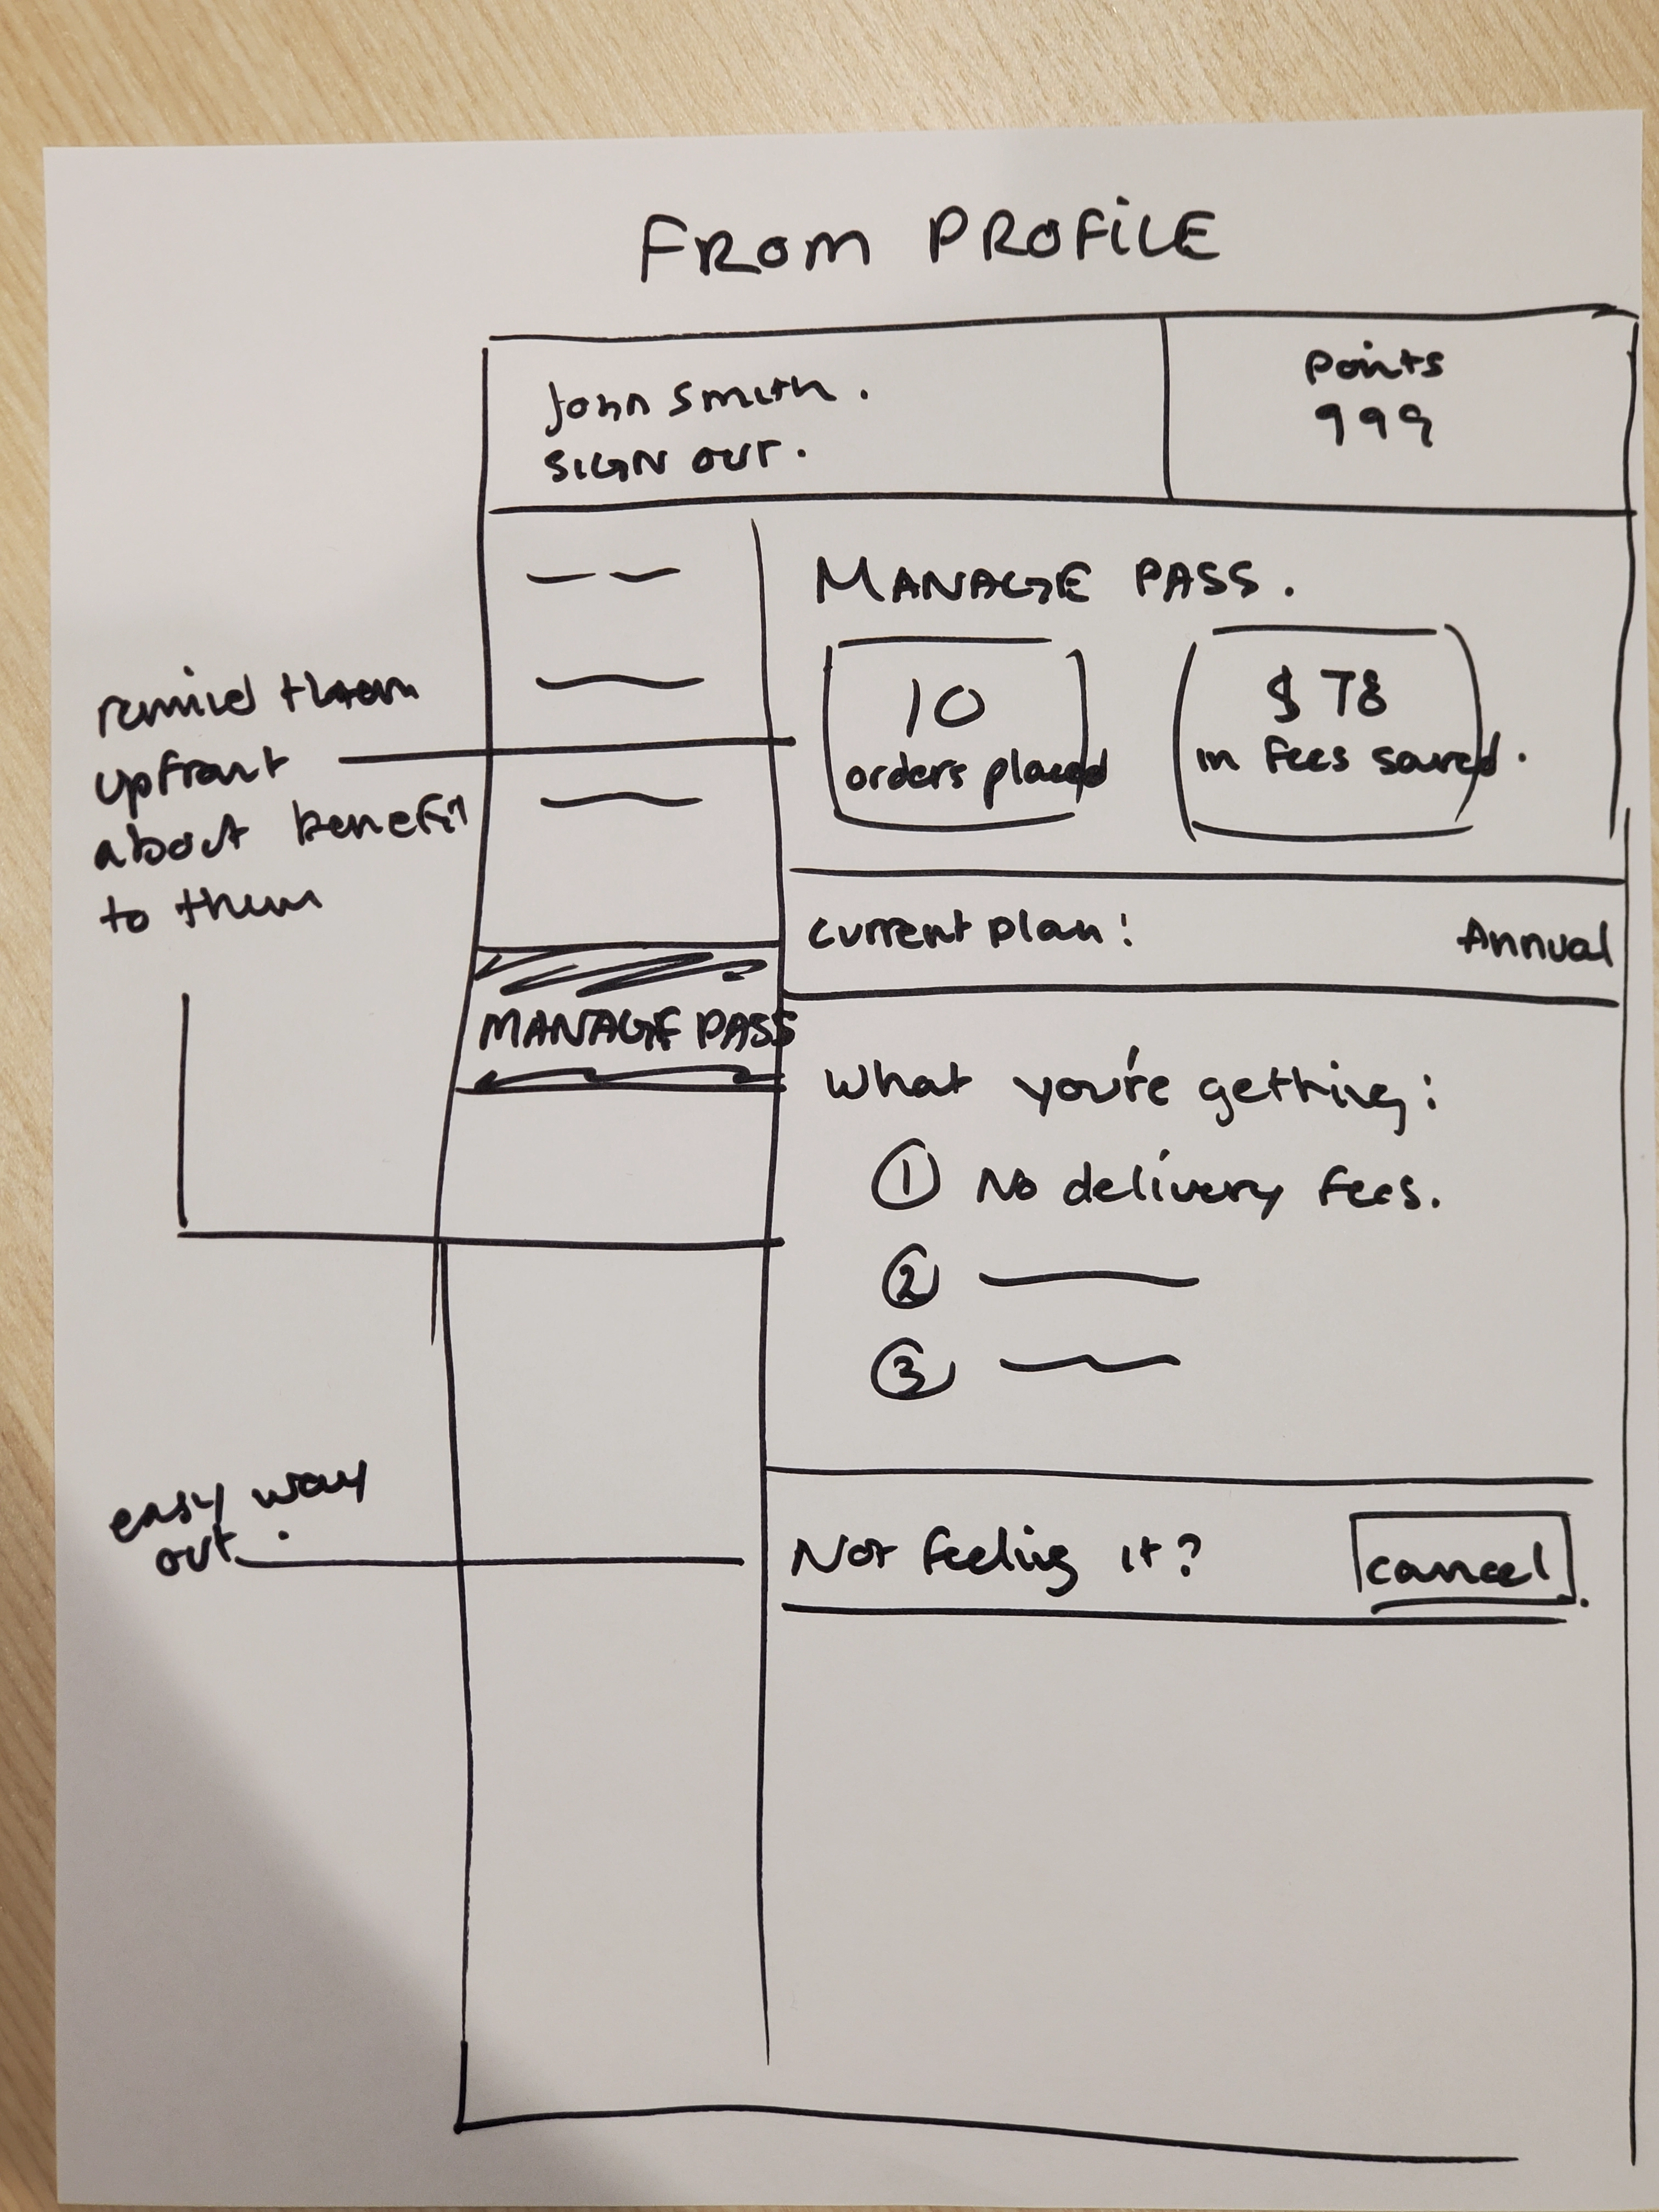 FROM PROFILE
John Smith.
SIGN OUT.
Points
999
MANAGE PASS.
10
orders placed
$ 78
in fees saved.
remind them
upfront
about benefit
to them
current plan:
Annual
MANAGE PASS
What you're getting:
① No delivery fees.
②
③
easy way
out.
Not feeling it?
cancel